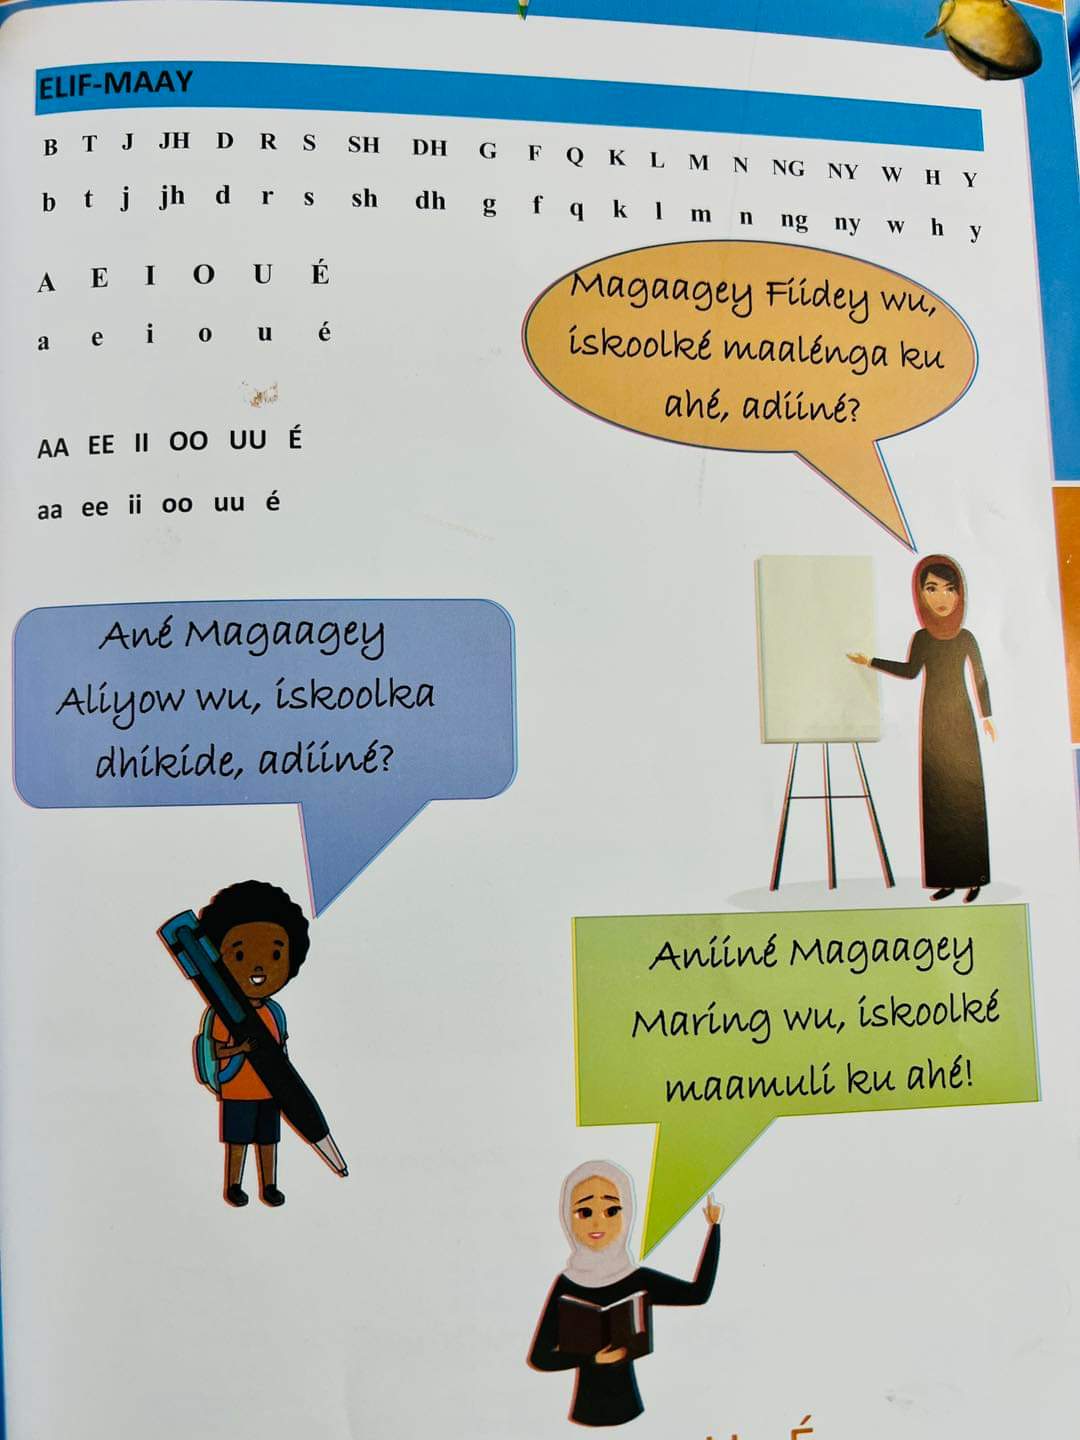 ELIF-MAAY
B T J JH D R S SH DH G F Q K L M N NG NY W H Y
b t j jh d r s sh dh g f q k l m n ng ny w h y
A E I O U É
a e i o u é
AA EE II OO UU É
aa ee ii oo uu é
Magaagey Fiidey wu,
iskoolké maalénga ku
ahé, adiiné?
Ané Magaagey
Aliyow wu, iskoolka
dhikide, adiiné?
Aniiné Magaagey
Maring wu, iskoolké
maamuli ku ahé!